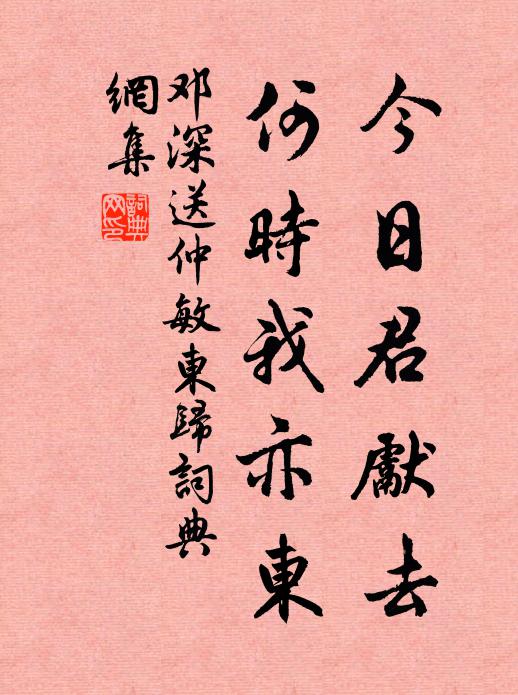 今日君獻去
何時我亦東
邓深送仲敏東歸詞典
網集
詞典网印